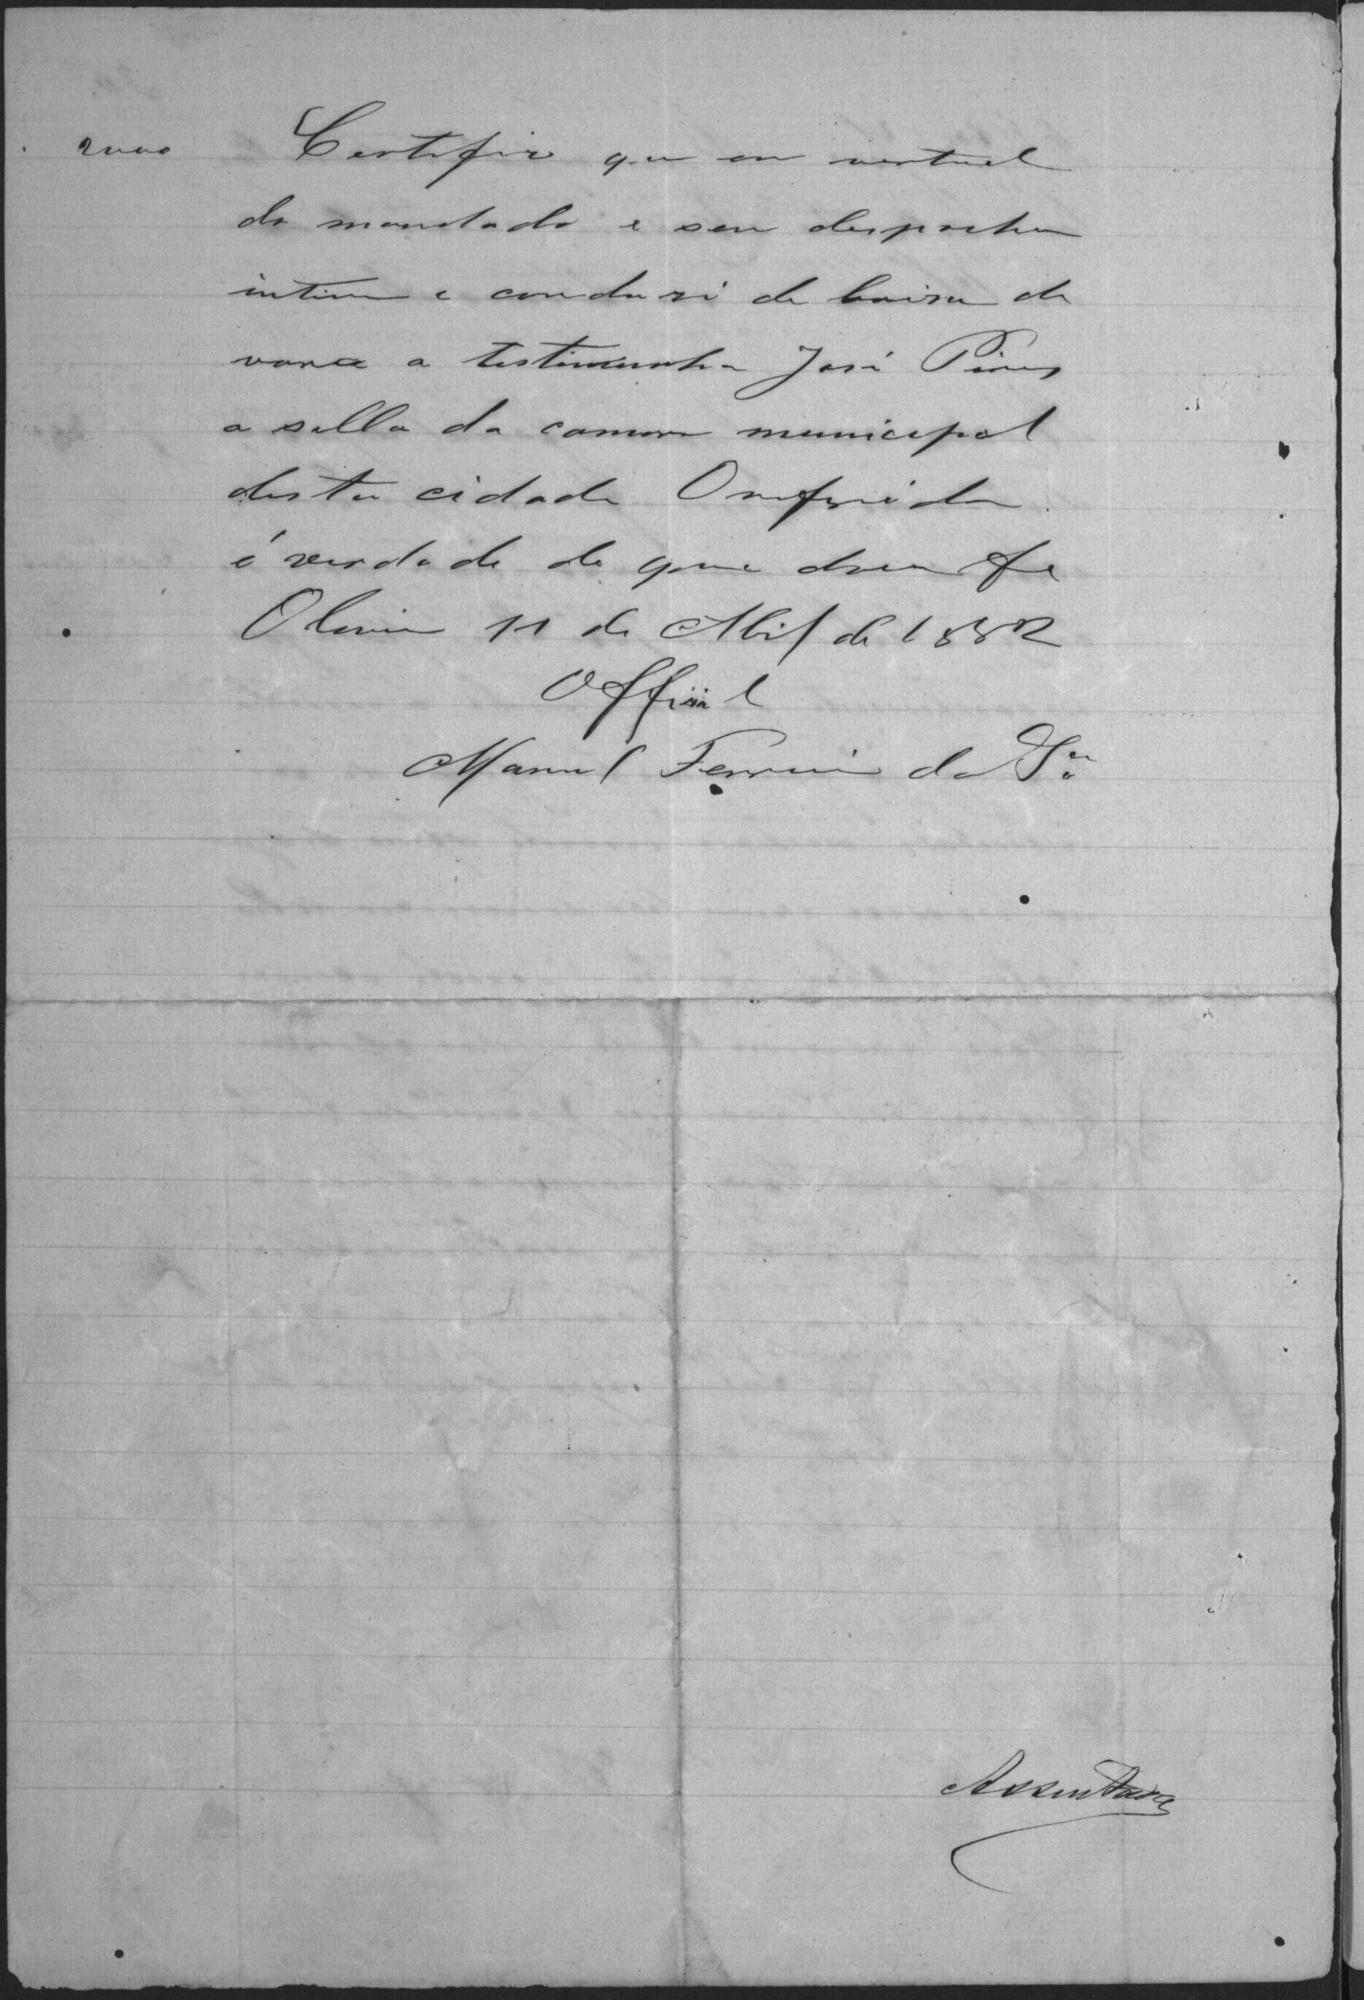 2000
Certifico que em vertude
do mandado e seu despacho
intimei e conduzi de baixo de
vara a testimunha José Pires
a salla da camara municipal
desta cidade O referido
é verdade de que dou fe
11 de Abril de 1882
Official
Manuel Ferreira da Sª